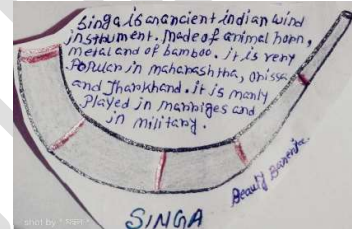 Singa is an ancient indian wind
instrument. Made of animal horn,
metal and of bamboo. it is very
Popular in maharashtra, orissa
and Jharkhand. it is manly
Played in marriges and
in military.
Beauty
SINGA
shot by